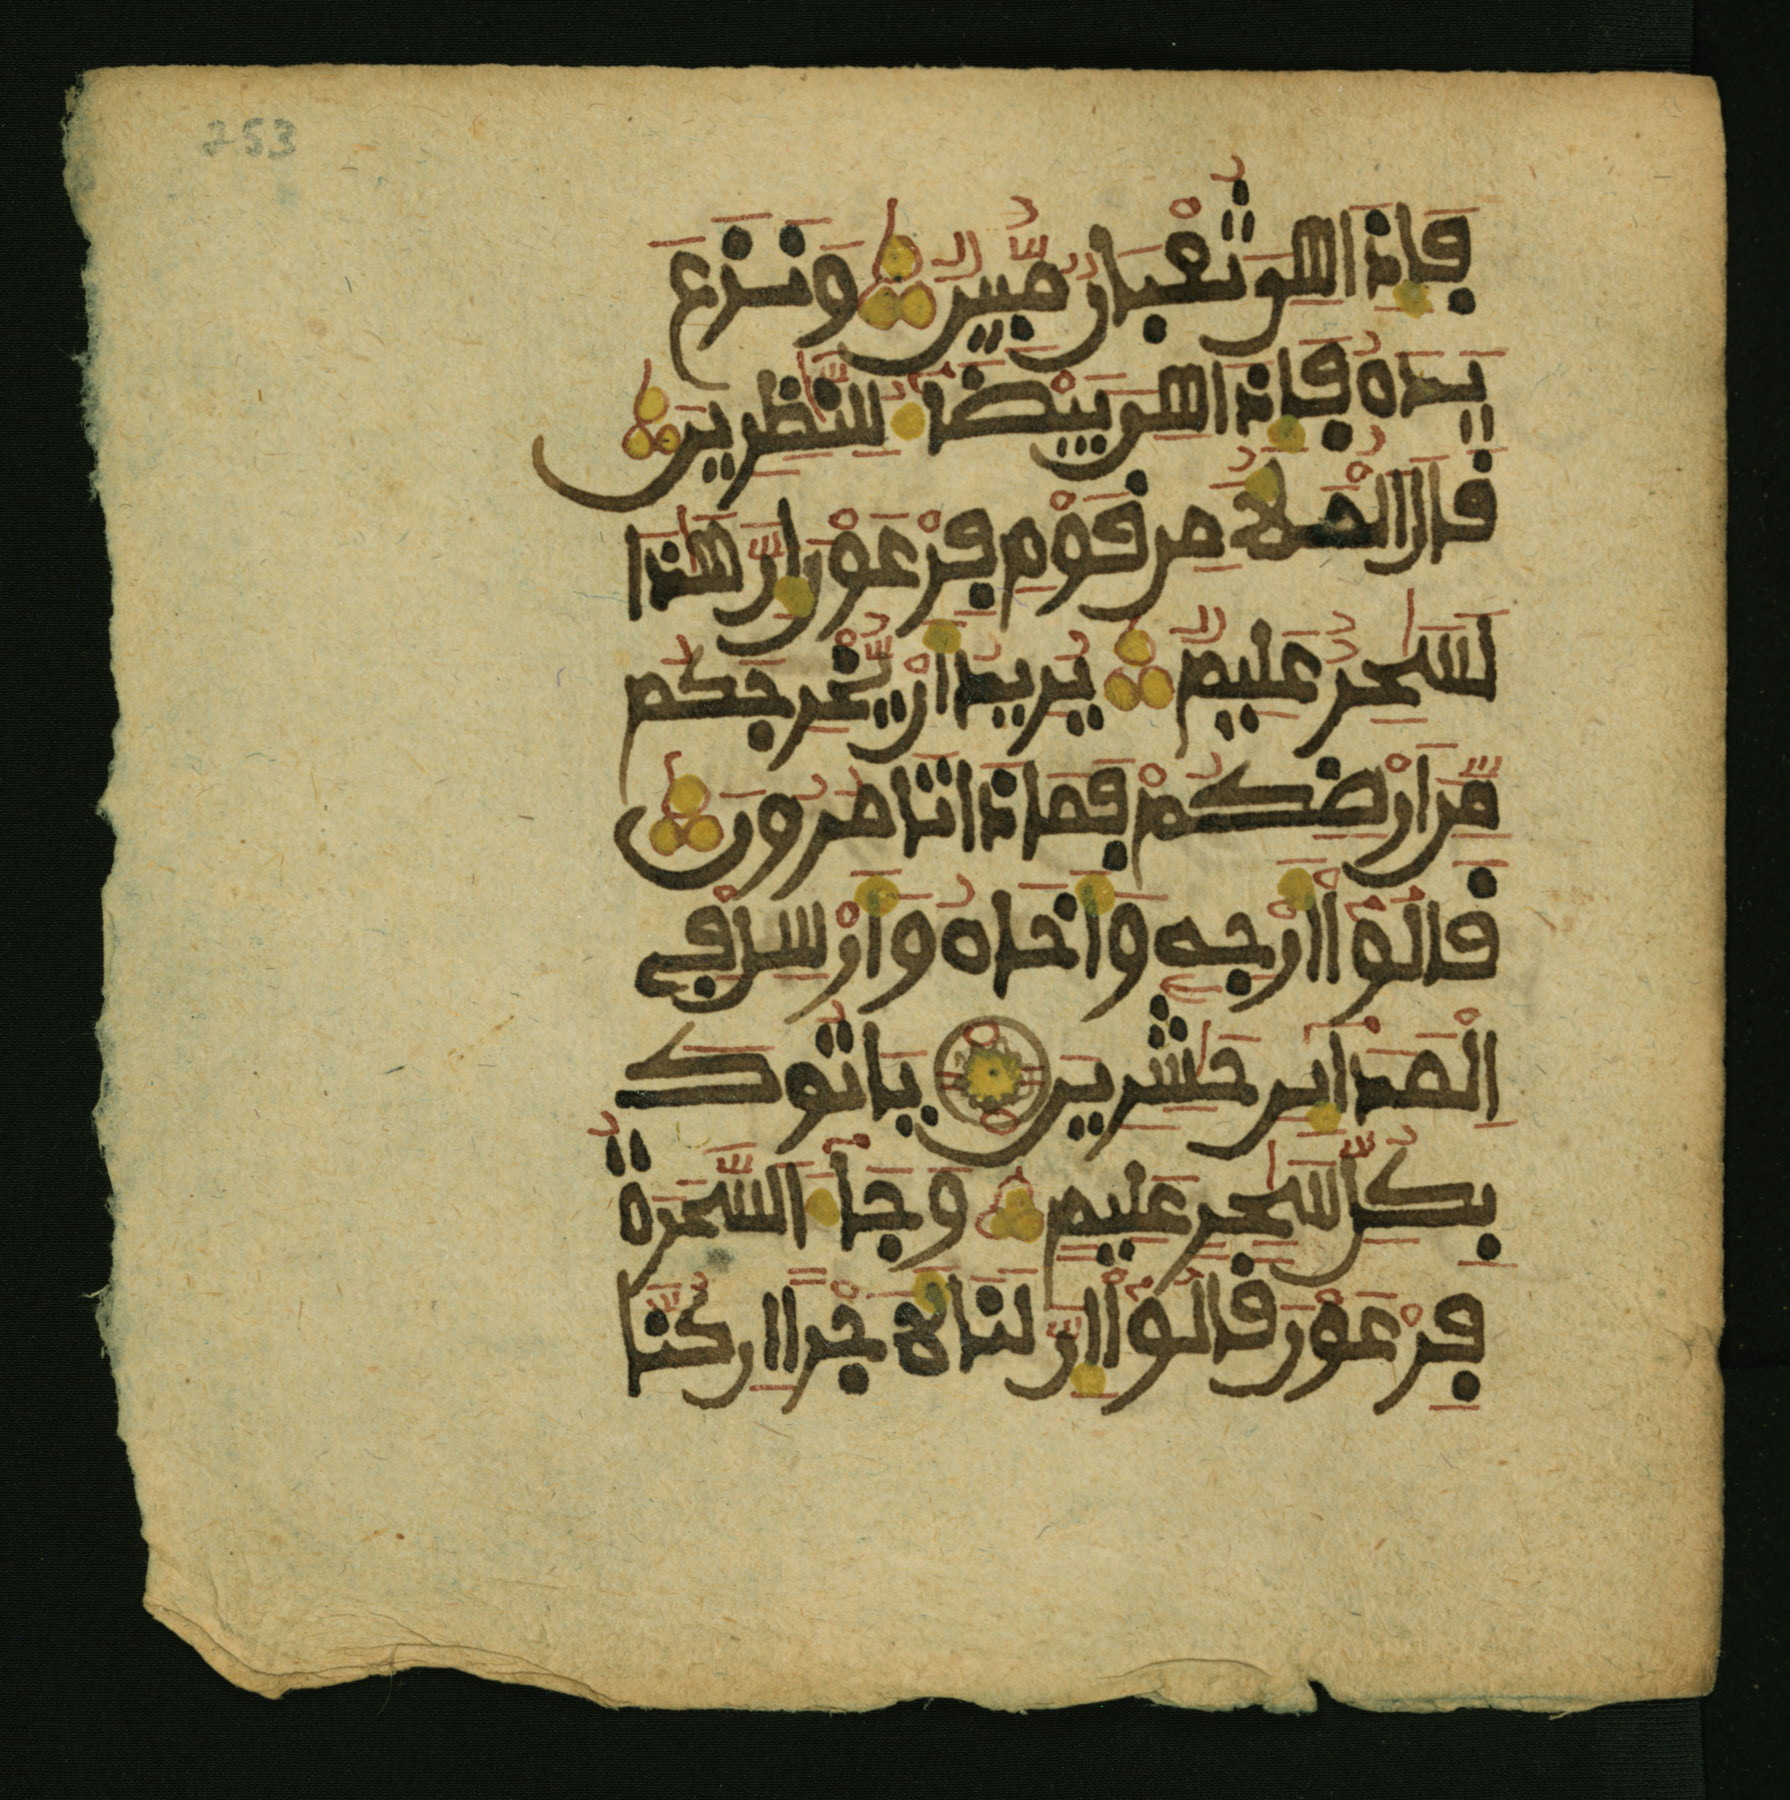 253
فَإِذَا هِىَ ثُعْبَانٌ مُّبِينٌ وَنَزَعَ
يَدَهُ فَإِذَا هِىَ بَيْضَآءُ لِلنَّٰظِرِينَ
قَالَ ٱلْمَلَأُ مِن قَوْمِ فِرْعَوْنَ إِنَّ هَٰذَا
لَسَٰحِرٌ عَلِيمٌ يُرِيدُ أَنْ يُّخْرِجَكُم
مِّنَ ارْضِكُمْ فَمَاذَا تَامُرُونَ
قَالُوٓا أَرْجِهِ وَأَخَاهُ وَأَرْسِلْ فِى
ٱلْمَدَآئِنِ حَٰشِرِينَ يَاتُوكَ
بِكُلِّ سَٰحِرٍ عَلِيمٍ وَجَآءَ ٱلسَّحَرَةُ
فِرْعَوْنَ قَالُوٓا إِنَّ لَنَا لَأَجْرًا إِن كُنَّا